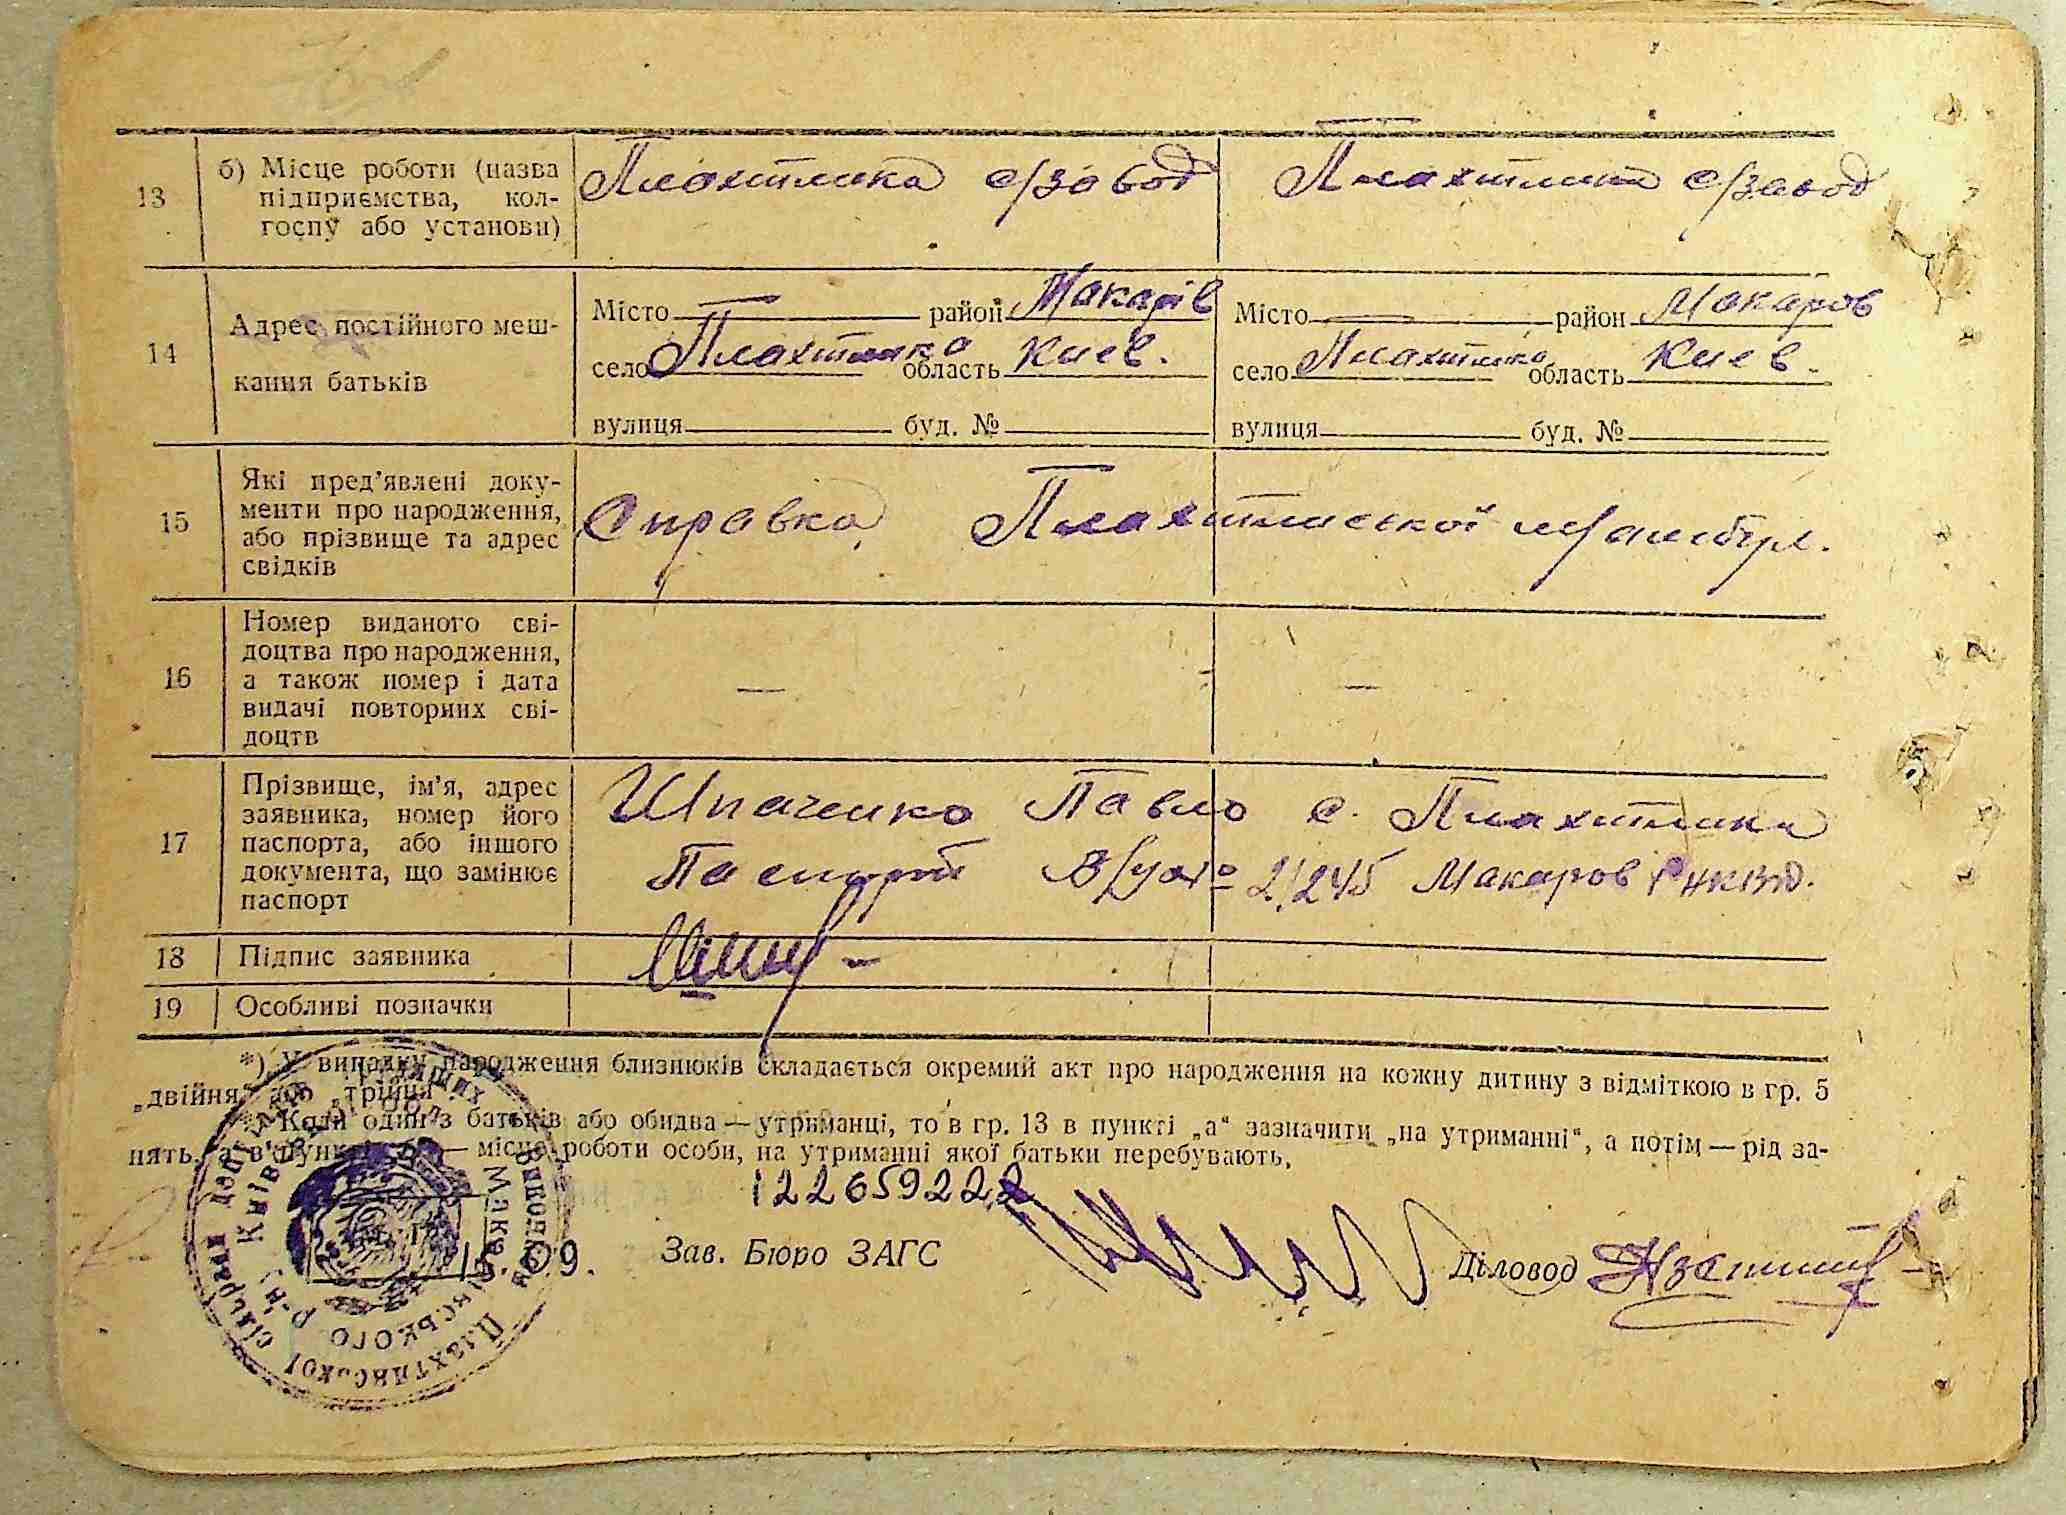 13 б) Місце роботи (назва Плахтянка с/завод Плахтянка с/завод
підприємства, кол-
госпу або установи)
14 Адрес постійного меш-
кання батьків
Місто район Макарів Місто район Макаров
село Плахтянка область Киев. село Плахтянка область Киев.
вулиця буд. № вулиця буд. №
15 Які пред’явлені доку-
менти про народження, Справка Плахтянської
або прізвище та адрес
свідків
16 Номер виданого сві-
доцтва про народження,
а також номер і дата
видачі повторних сві-
доцтв
17 Прізвище, ім’я, адрес Шпаченко Павло с. Плахтянка
заявника, номер його
паспорта, або іншого Паспорт Макаров РНКВД.
документа, що замінює
паспорт
18 Підпис заявника
19 Особливі позначки
*) У випадку народження близнюків складається окремий акт про народження на кожну дитину з відміткою в гр. 5
„двійня“ або „трійня“
Коли один з батьків або обидва — утриманці, то в гр. 13 в пункті „а“ зазначити „на утриманні“, а потім — рід за-
нять, а в пункті — місце роботи особи, на утриманні якої батьки перебувають.
122659222
Зав. Бюро ЗАГС Діловод
Плахтянської сільради депутатів трудящих
Макарівського р-ну Київської